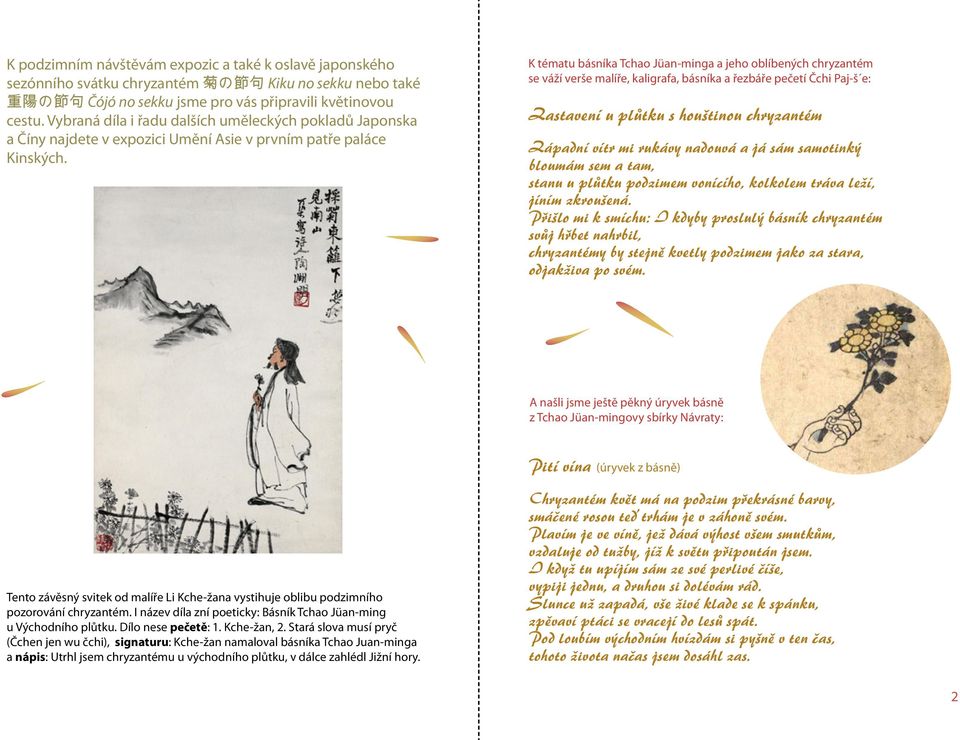 K podzimním návštěvám expozic a také k oslavě japonského
sezónního svátku chryzantém 菊の節句 Kiku no sekku nebo také
重陽の節句 Čójó no sekku jsme pro vás připravili květinovou
cestu. Vybraná díla i řadu dalších uměleckých pokladů Japonska
a Číny najdete v expozici Umění Asie v prvním patře paláce
Kinských.
採菊東籬下
見南山
Tento závěsný svitek od malíře Li Kche-žana vystihuje oblibu podzimního
pozorování chryzantém. I název díla zní poeticky: Básník Tchao Jüan-ming
u Východního plůtku. Dílo nese pečetě: 1. Kche-žan, 2. Stará slova musí pryč
(Čchen jen wu čchi), signaturu: Kche-žan namaloval básníka Tchao Juan-minga
a nápis: Utrhl jsem chryzantému u východního plůtku, v dálce zahlédl Jižní hory.
K tématu básníka Tchao Jüan-minga a jeho oblíbených chryzantém
se váží verše malíře, kaligrafa, básníka a řezbáře pečetí Čchi Paj-š´e:
Zastavení u plůtku s houštinou chryzantém
Západní vítr mi rukávy nadouvá a já sám samotinký
bloumám sem a tam,
stanu u plůtku podzimem vonícího, kolkolem tráva leží,
jíním zkroušená.
Přišlo mi k smíchu: I kdyby proslulý básník chryzantém
svůj hřbet nahrbil,
chryzantémy by stejně kvetly podzimem jako za stara,
odjakživa po svém.
A našli jsme ještě pěkný úryvek básně
z Tchao Jüan-mingovy sbírky Návraty:
Pití vína (úryvek z básně)
Chryzantém květ má na podzim překrásné barvy,
smáčené rosou teď trhám je v záhoně svém.
Plavím je ve víně, jež dává výhost všem smutkům,
vzdaluje od tužby, jíž k světu připoután jsem.
I když tu upíjím sám ze své perlivé číše,
vypiji jednu, a druhou si dolévám rád.
Slunce už zapadá, vše živé klade se k spánku,
zpěvaví ptáci se vracejí do lesů spát.
Pod loubím východním hvízdám si pyšně v ten čas,
tohoto života načas jsem dosáhl zas.
2